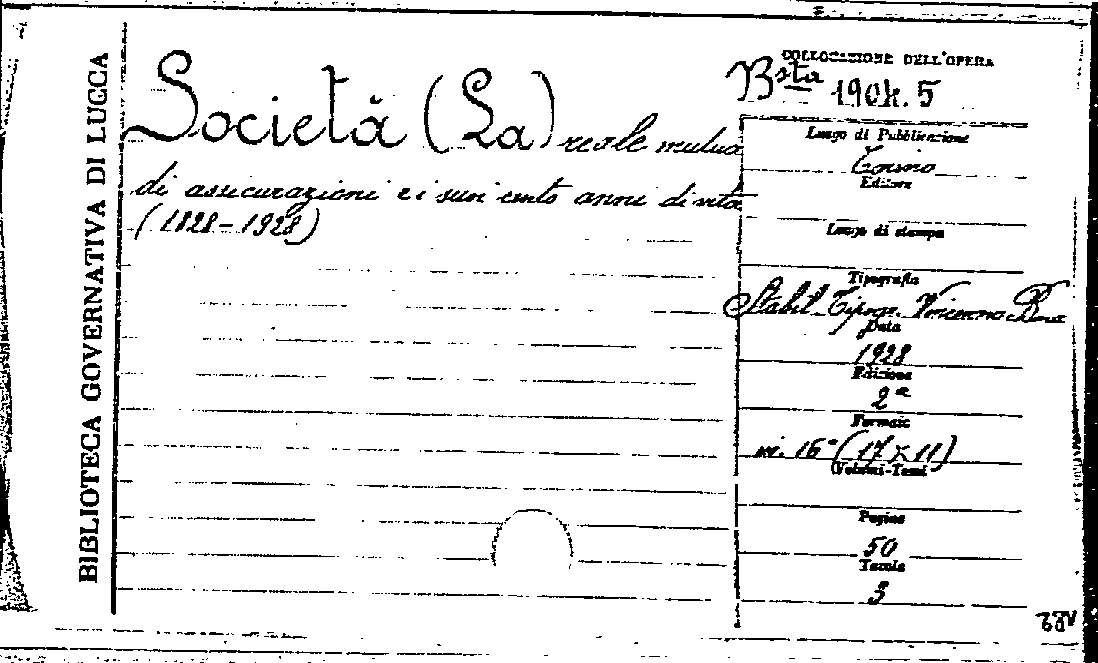 BIBLIOTECA GOVERNATIVA DI LUCCA
Società (La) reale mutua
di assicurazioni e i suoi cento anni di vita
(1828-1928)
COLLOCAZIONE DELL'OPERA
Bsta 1904.5
Luogo di Pubblicazione
Torino
Editore
Luogo di stampa
Tipografia
Stabil. Tipogr. Vincenzo Bona
Data
1928
Edizione
2a
Formato
in. 16° (17 x 11)
(Volumi-Tomi
Pagine
50
Tavole
3